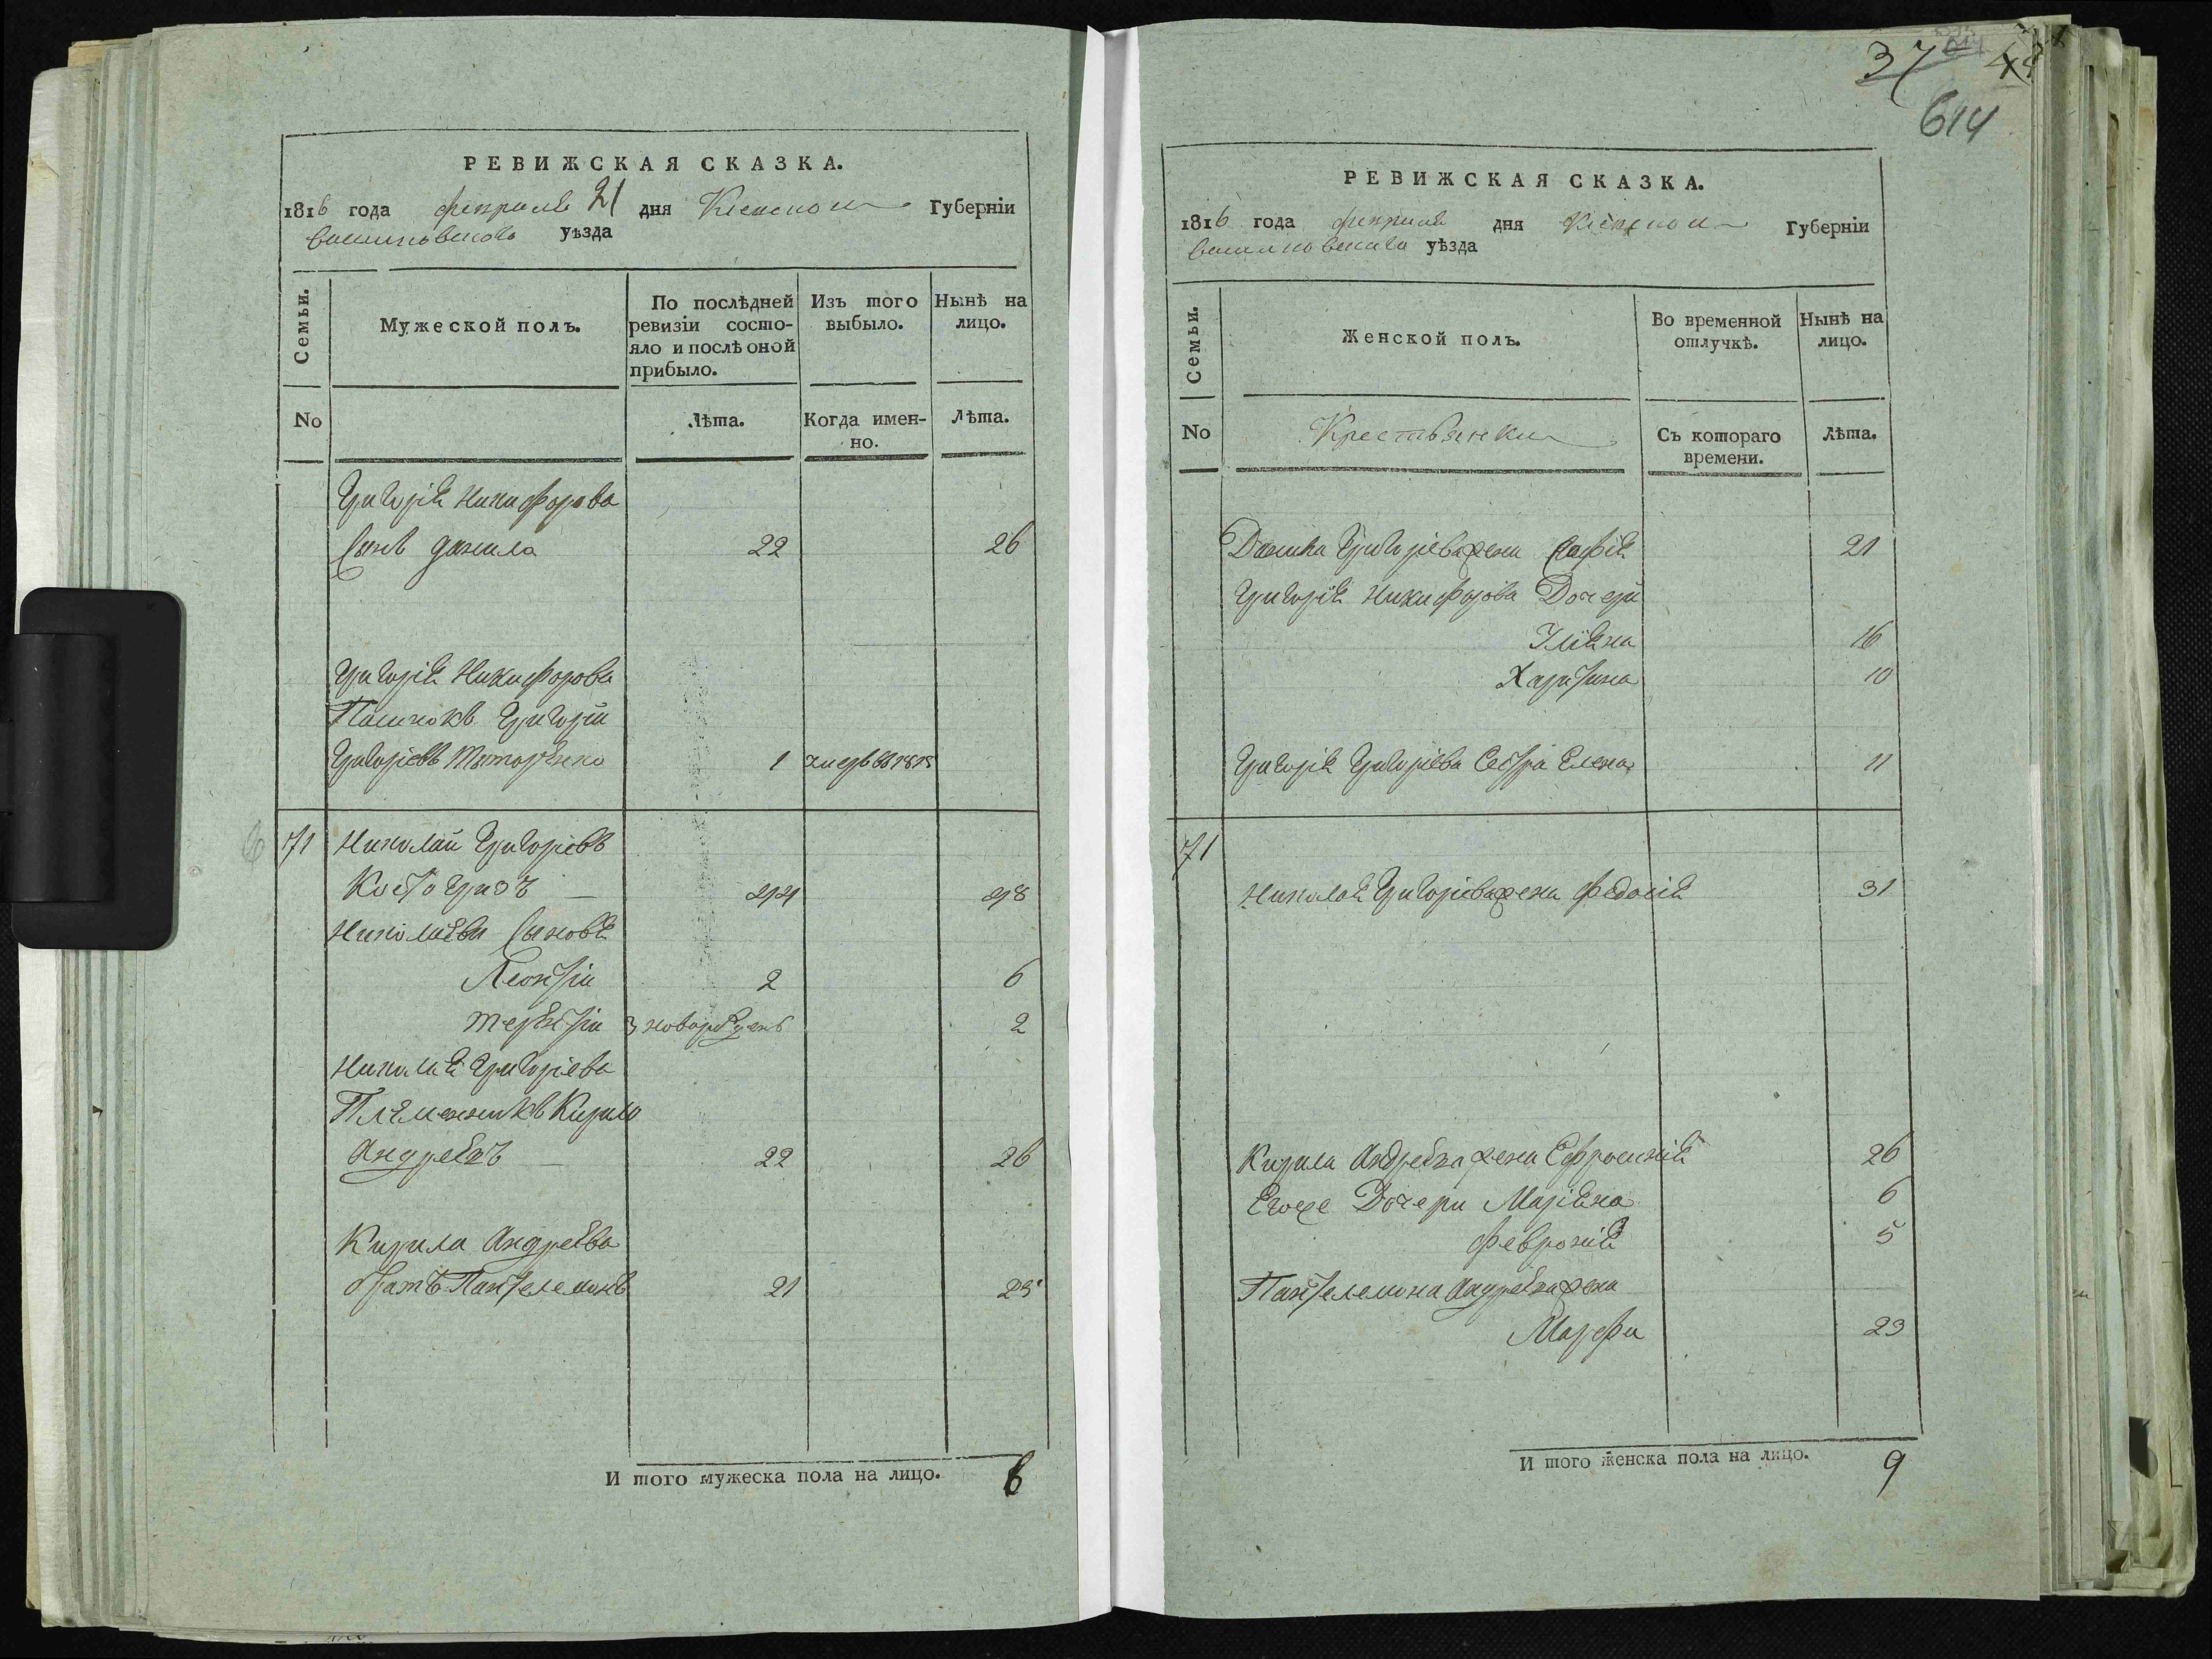 РЕВИЖСКАЯ СКАЗКА.
1816 года февраля 21 дня Кіевской Губерніи
уѣзда
Семьи.
Мужеской полъ.
По послѣдней ревизіи состо-
яло и послѣ оной
прибыло.
Изъ того
выбыло.
Нынѣ на
лицо.
No
Лѣта.
Когда имен-
но.
Лѣта.
Григорія Никифорова
Сынъ Данила 22 26
Григорія Никифорова
Григорій
Григорьевъ 1 1815
71 Николай Григорьевъ
Костогризъ 44 48
Николаева Сыновья
Леонтій 2 6
Терентій новорожденъ 2
Николая Григорьева
Племянникъ Кирило
Андреевъ 22 26
Кирила Андреева
братъ Пантелемонъ 21 25
И того мужеска пола на лицо. 6
37
614
РЕВИЖСКАЯ СКАЗКА.
1816 года февраля дня Кіевской Губерніи
уѣзда
Семьи.
Женской полъ.
Во временной
отлучкѣ.
Нынѣ на
лицо.
No
Крестьянки
Съ котораго
времени.
Лѣта.
Данила Григорьева жена Софія 21
Григорія Никифорова Дочери
Уліяна 16
Харитина 10
Григорія Григорьева Сестра Елена 11
71
Николая Григорьева жена Федосія 31
Кирила Андреева жена Ефросинія 26
Егоже Дочери Маріяна 6
Февронія 5
Пантелемона Андреева жена
Марфа 23
И того женска пола на лицо. 9